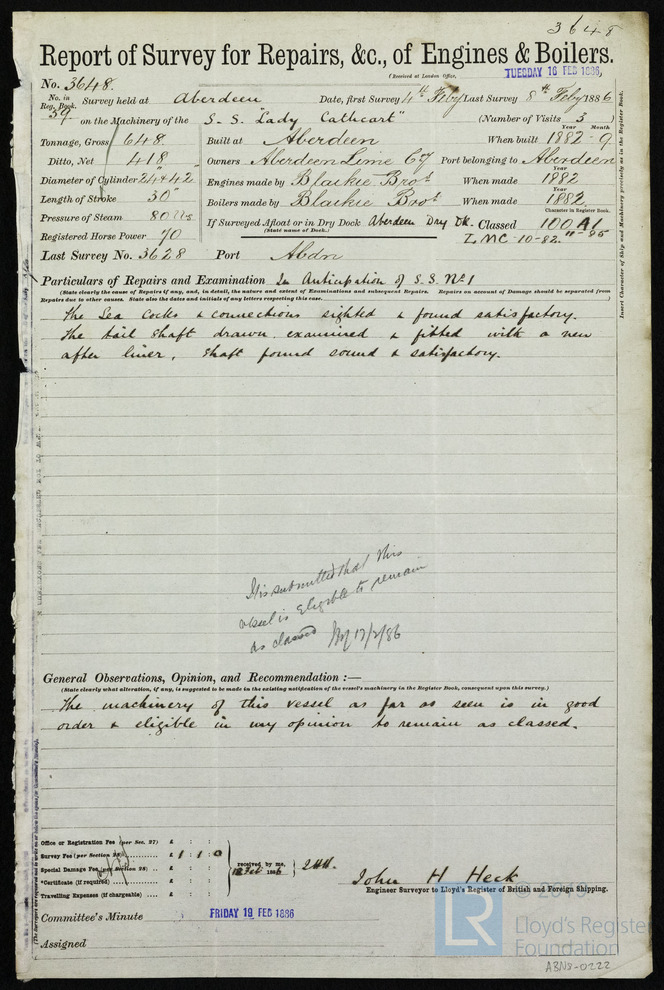 3648
Report of Survey for Repairs, &c., of Engines & Boilers.
(Received at London Office, TUESDAY 16 FEB 1886,
No. 3648.
No. in Reg. Book. 39 Survey held at Aberdeen Date, first Survey 4th Feby Last Survey 8th Feby 1886
on the Machinery of the S. S. "Lady Cathcart" (Number of Visits 3 )
Tonnage, Gross 648 Built at Aberdeen When built Year 1882 Month 9
Ditto, Net 418 Owners Aberdeen Lime Coy Port belonging to Aberdeen
Diameter of Cylinder 24 & 42 Engines made by Blaikie Bros When made 1882
Length of Stroke 30" Boilers made by Blaikie Bros When made Year 1882
Pressure of Steam 80 lbs If Surveyed Afloat or in Dry Dock Aberdeen Dry Dk. Classed Character in Register Book. 100 A1
(State name of Dock.)
Registered Horse Power 70 LMC 10-82
Last Survey No. 3628 Port Abdn
Particulars of Repairs and Examination In Anticipation of S. S. No 1
(State clearly the cause of Repairs if any, and, in detail, the nature and extent of Examinations and subsequent Repairs. Repairs on account of Damage should be separated from
Repairs due to other causes. State also the dates and initials of any letters respecting this case. )
The Sea Cocks & connections sighted & found satisfactory.
The tail shaft drawn examined & fitted with a new
after liner, shaft found sound & satisfactory.
It is submitted that this
vessel is eligible to remain
as classed 17/2/86
General Observations, Opinion, and Recommendation :—
(State clearly what alteration, if any, is suggested to be made in the existing notification of the vessel's machinery in the Register Book, consequent upon this survey.)
The machinery of this vessel as far as seen is in good
order & eligible in my opinion to remain as classed.
Office or Registration Fee (per Sec. 27) £ : :
Survey Fee (per Section 28) £ 1 : 1 : 0
Special Damage Fee (per Section 28) £ : :
*Certificate (if required) £ : :
Travelling Expenses (if chargeable) £ : :
received by me,
Feb 1886
John H Heck
Engineer Surveyor to Lloyd's Register of British and Foreign Shipping.
Committee's Minute FRIDAY 19 FEB 1886
Assigned
Insert Character of Ship and Machinery precisely as in the Register Book.
LR
© 2019
Lloyd's Register
Foundation
ABN8-0222